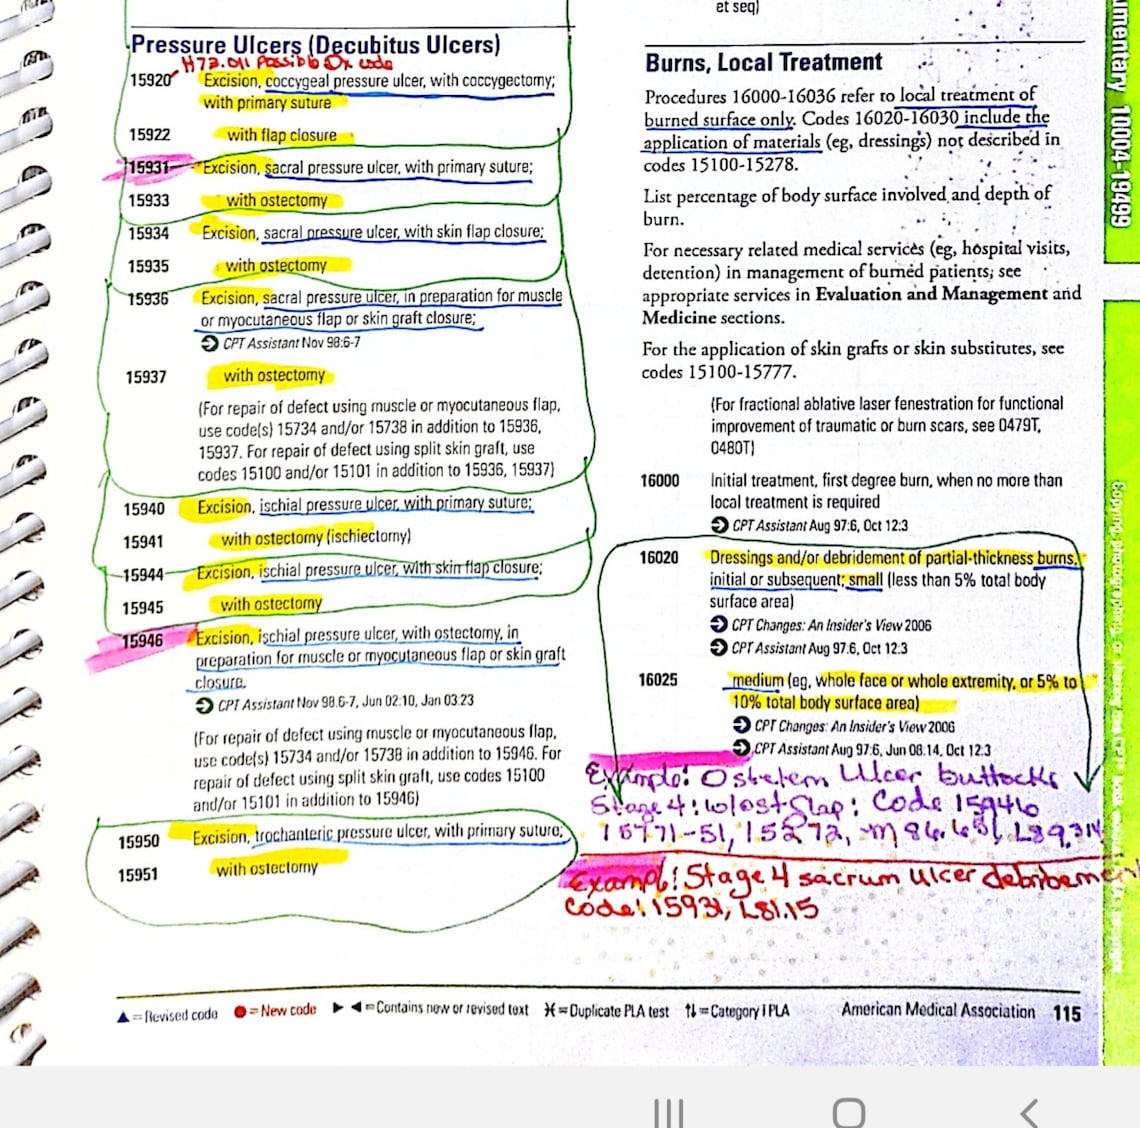 et seq)
Pressure Ulcers (Decubitus Ulcers)
H72.011 Possible Dx code
15920 Excision, coccygeal pressure ulcer, with coccygectomy;
with primary suture
15922 with flap closure
15931 Excision, sacral pressure ulcer, with primary suture;
15933 with ostectomy
15934 Excision, sacral pressure ulcer, with skin flap closure;
15935 with ostectomy
15936 Excision, sacral pressure ulcer, in preparation for muscle
or myocutaneous flap or skin graft closure;
CPT Assistant Nov 98:6-7
15937 with ostectomy
(For repair of defect using muscle or myocutaneous flap,
use code(s) 15734 and/or 15738 in addition to 15936,
15937. For repair of defect using split skin graft, use
codes 15100 and/or 15101 in addition to 15936, 15937)
15940 Excision, ischial pressure ulcer, with primary suture;
15941 with ostectomy (ischiectomy)
15944 Excision, ischial pressure ulcer, with skin flap closure;
15945 with ostectomy
15946 Excision, ischial pressure ulcer, with ostectomy, in
preparation for muscle or myocutaneous flap or skin graft
closure.
CPT Assistant Nov 98.6-7, Jun 02:10, Jan 03:23
(For repair of defect using muscle or myocutaneous flap,
use code(s) 15734 and/or 15738 in addition to 15946. For
repair of defect using split skin graft, use codes 15100
and/or 15101 in addition to 15946)
15950 Excision, trochanteric pressure ulcer, with primary suture;
15951 with ostectomy
Burns, Local Treatment
Procedures 16000-16036 refer to local treatment of
burned surface only. Codes 16020-16030 include the
application of materials (eg, dressings) not described in
codes 15100-15278.
List percentage of body surface involved and depth of
burn.
For necessary related medical services (eg, hospital visits,
detention) in management of burned patients, see
appropriate services in Evaluation and Management and
Medicine sections.
For the application of skin grafts or skin substitutes, see
codes 15100-15777.
(For fractional ablative laser fenestration for functional
improvement of traumatic or burn scars, see 0479T,
0480T)
16000 Initial treatment, first degree burn, when no more than
local treatment is required
CPT Assistant Aug 97:6, Oct 12:3
16020 Dressings and/or debridement of partial-thickness burns,
initial or subsequent; small (less than 5% total body
surface area)
CPT Changes: An Insider's View 2006
CPT Assistant Aug 97:6, Oct 12:3
16025 medium (eg, whole face or whole extremity, or 5% to
10% total body surface area)
CPT Changes: An Insider's View 2006
CPT Assistant Aug 97:6, Jun 08:14, Oct 12:3
Example: Ulcer buttocks
Stage 4: Flap: Code 15946
15771-51, 15272, L89.314
Example! Stage 4 sacrum ulcer debribement
Code! 15931, L81.15
=Revised code =New code =Contains new or revised text =Duplicate PLA test =Category I PLA American Medical Association 115
10004-19499